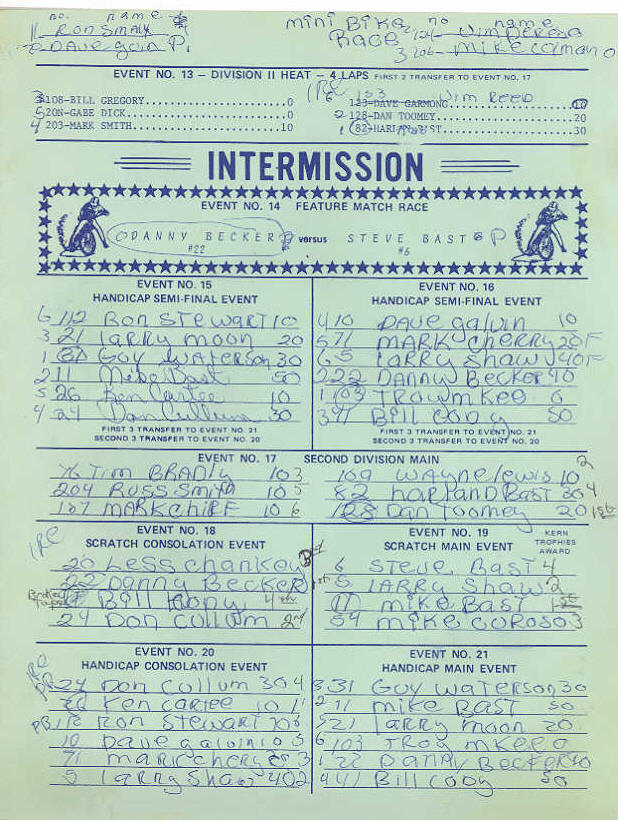 no. name
mini Bike no name
11 RON SMALY 4
Race 1 126 - Jim Peresa
2 Dave goin P.
3 206 - mike caman o
EVENT NO. 13 – DIVISION II HEAT – 4 LAPS FIRST 2 TRANSFER TO EVENT NO. 17
3 108-BILL GREGORY 0
(Re 6 133 Jim Reed
123-DAVE GARMONG 10
5 20N-GABE DICK 0
2 128-DAN TOOMEY 20
4 203-MARK SMITH 10
1 (82-HARLAN BAST 30
INTERMISSION
EVENT NO. 14 FEATURE MATCH RACE
DANNY BECKER P versus STEVE BAST P
#22 #6
EVENT NO. 15
HANDICAP SEMI-FINAL EVENT
6 112 Ron STewart 10
3 21 Larry moon 20
1 31 Guy Waterson 30
2 11 Mike Bast 50
5 26 Ken Cartee 10
4 24 Don Cullum 30
FIRST 3 TRANSFER TO EVENT NO. 21
SECOND 3 TRANSFER TO EVENT NO. 20
EVENT NO. 16
HANDICAP SEMI-FINAL EVENT
4 10 Dave galvin 10
5 71 MARK CHERRY 20 F
6 5 Larry Shaw 40 F
2 22 Danny Becker 40
1 103 Troy mKee 0
3 41 Bill Cody 50
FIRST 3 TRANSFER TO EVENT NO. 21
SECOND 3 TRANSFER TO EVENT NO. 20
EVENT NO. 17 SECOND DIVISION MAIN
76 Tim BRADly 10 3
109 Wayne lewis 10 2
204 Russ Smith 10 5
82 Harland Bast 30 4
107 MARK CHIEF 10 6
128 Dan Toomey 20 1st
EVENT NO. 18
SCRATCH CONSOLATION EVENT
(Re
20 Less chankey 3rd
22 Danny Becker 1st
Bill Cody 4th
24 Don Cullum 2nd
EVENT NO. 19
SCRATCH MAIN EVENT
KERN
TROPHIES
AWARD
6 Steve Bast 4
5 Larry Shaw 2
11 mike Bast 1st
54 mike CUROSO 3
EVENT NO. 20
HANDICAP CONSOLATION EVENT
24 Don Cullum 30 4
26 Ken Cartee 10 1
112 Ron Stewart 10 6
10 Dave galvin 10 5
71 mark chery 20 3
5 Larry Shaw 40 2
EVENT NO. 21
HANDICAP MAIN EVENT
3 31 Guy Waterson 30
2 11 mike Bast 50
5 21 Larry moon 20
6 103 Troy mKee 0
1 22 Danny Becker 40
4 41 Bill Cody 50